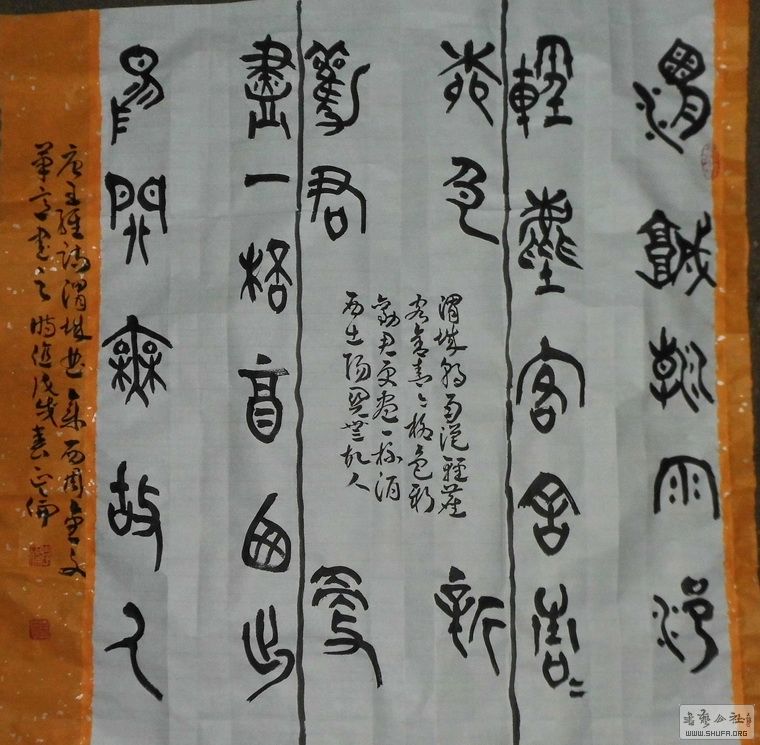 渭城朝雨浥
輕塵客舍青〻
柳色新
勸君更
盡一杯酒西出
昜関無故人
渭城朝雨浥輕塵
客舍青〻柳色新
勸君更盡一杯酒
西出陽関無故人
唐王維詩渭城曲集西周金文
筆意書之時值戊戌春
書藝公社
WWW.SHUFA.ORG